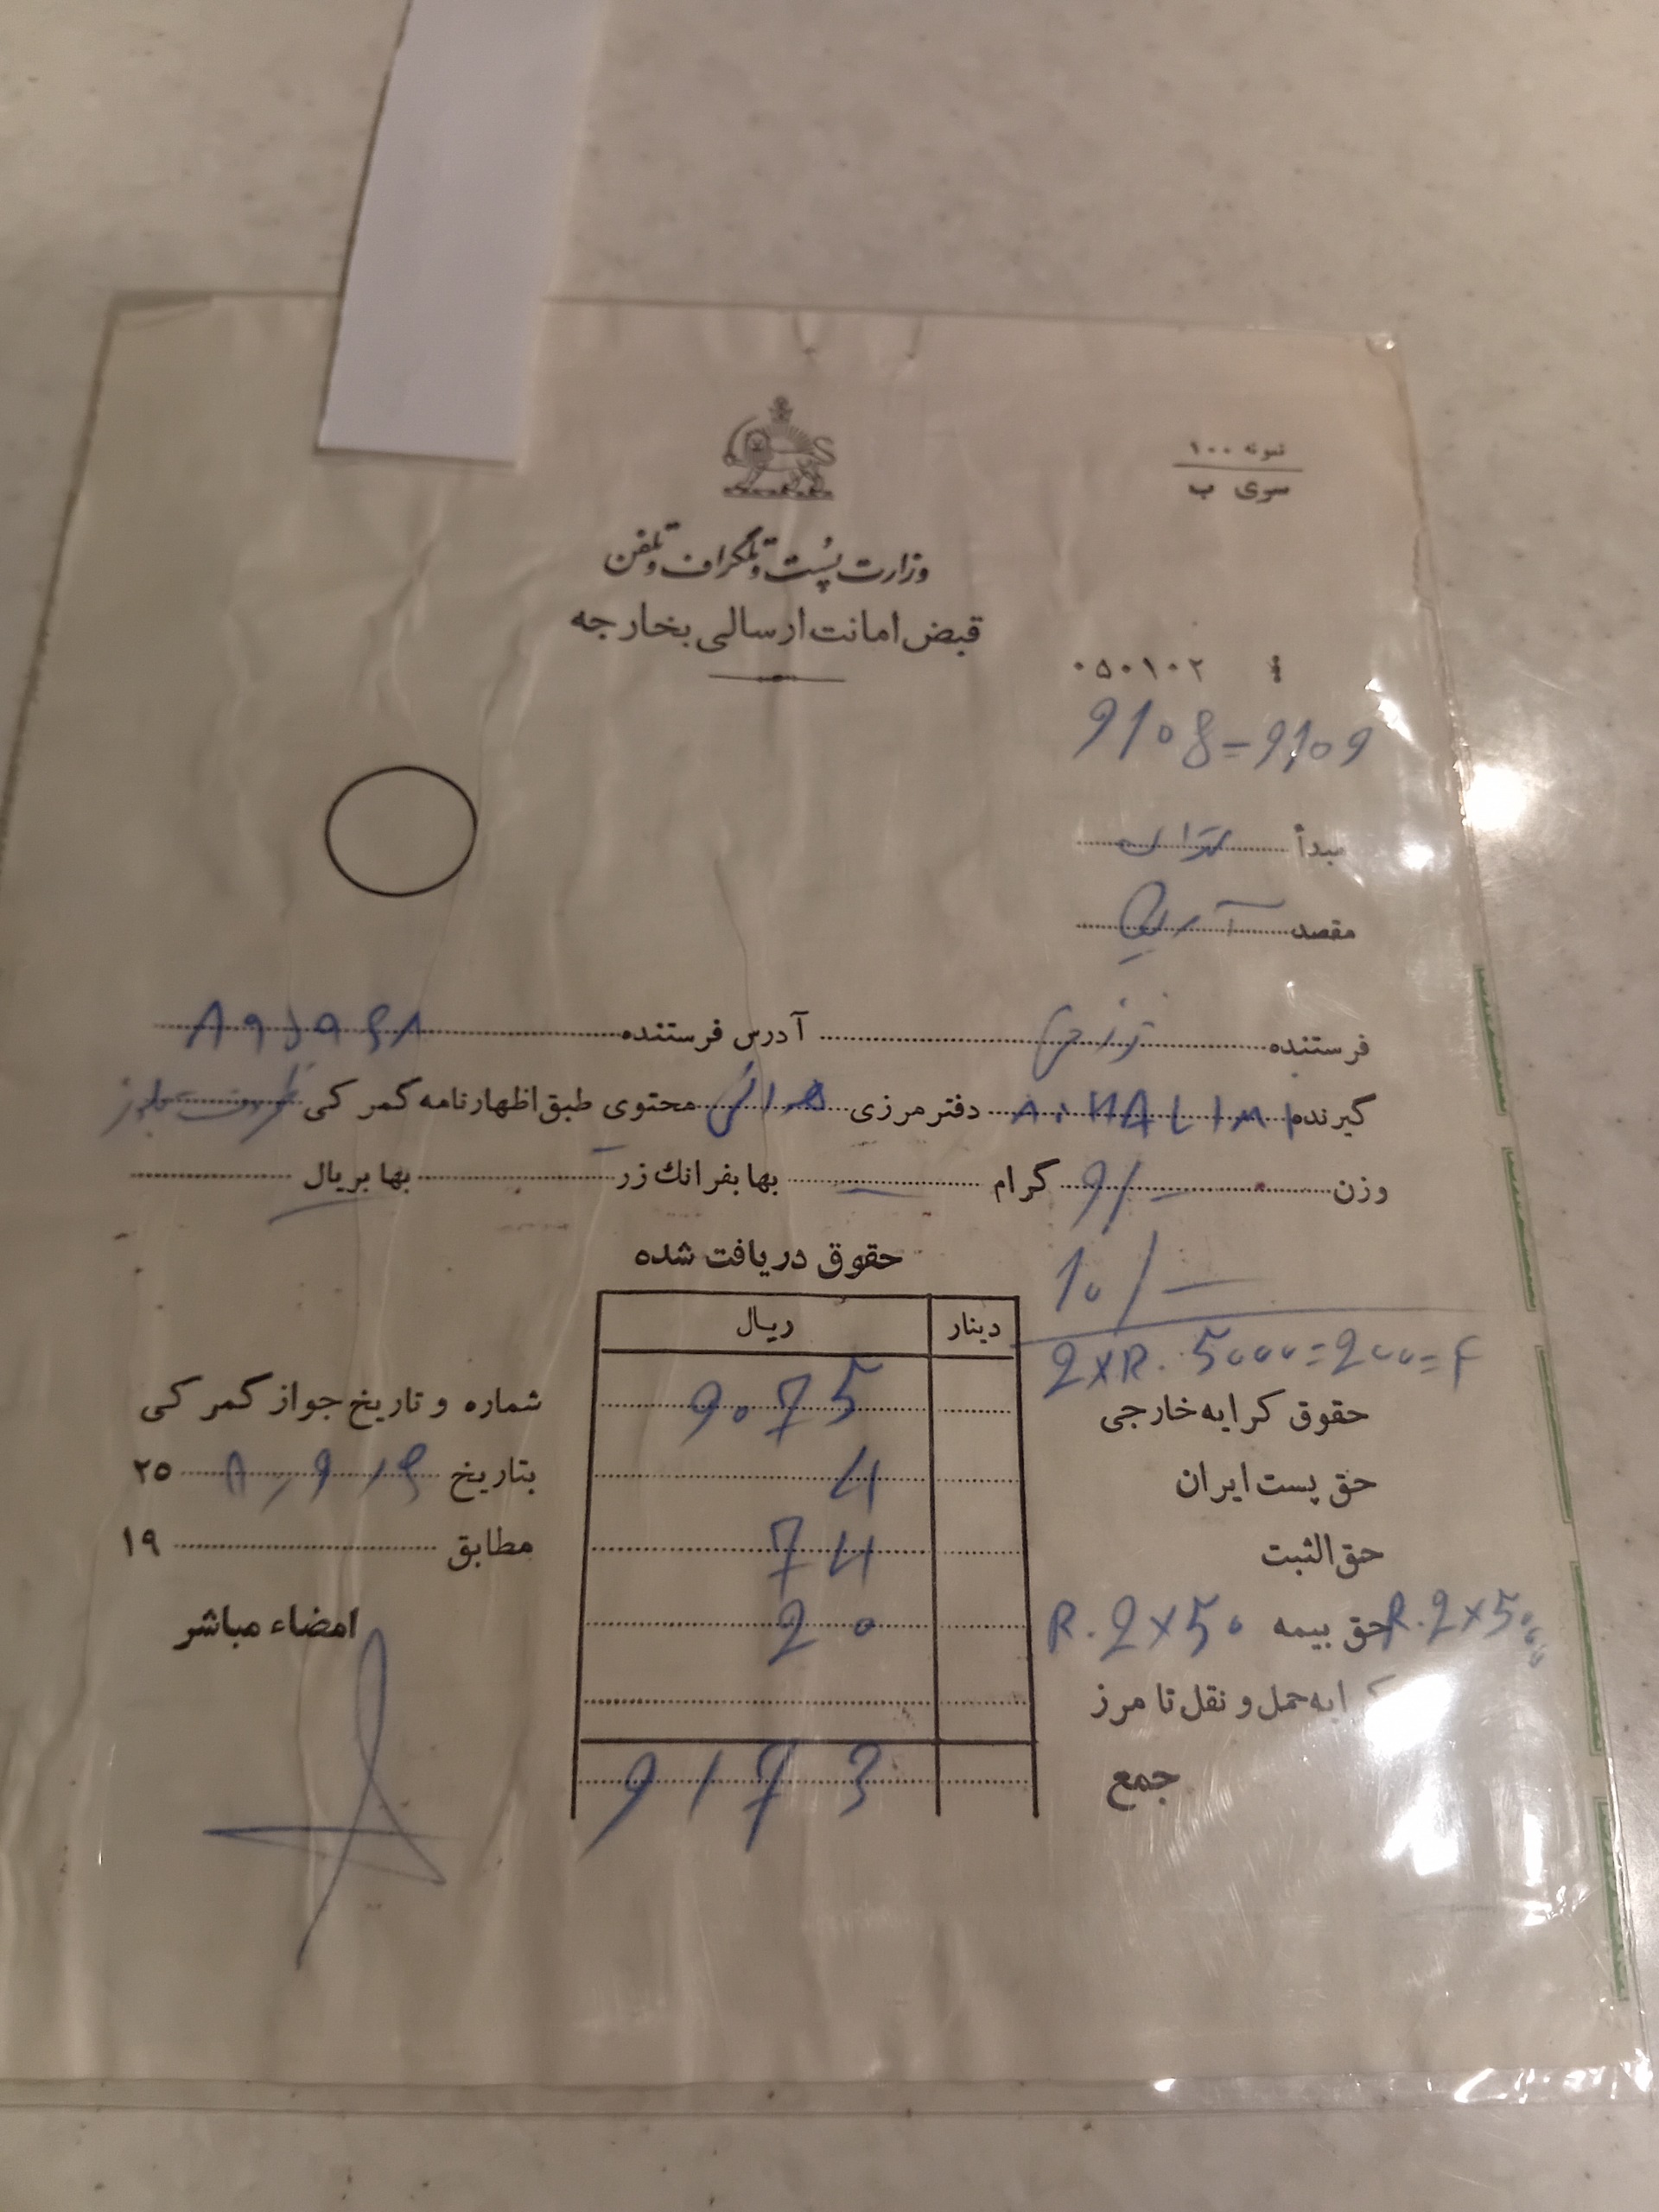 نمونه ۱۰۰
سری ب
وزارت پست و تلگراف و تلفن
قبض امانت ارسالی بخارجه
۰۵۰۱۰۲
9108=9109
مبدأ تهران
مقصد آمریکا
فرستنده آدرس فرستنده
گیرنده A. HALIMI دفتر مرزی محتوی طبق اظهارنامه گمرکی
وزن 9/- گرام بها بفرانك زر بها بریال
10/-
حقوق دریافت شده
2XR. 5000=200=F
دینار ریال
حقوق کرایه خارجی 9075 شماره و تاریخ جواز گمرکی
حق پست ایران 4 بتاریخ ۲۵
حق الثبت 74 مطابق ۱۹
R.2X50 حق بیمه R.2X50 20 امضاء مباشر
کرایه حمل و نقل تا مرز
جمع 9173